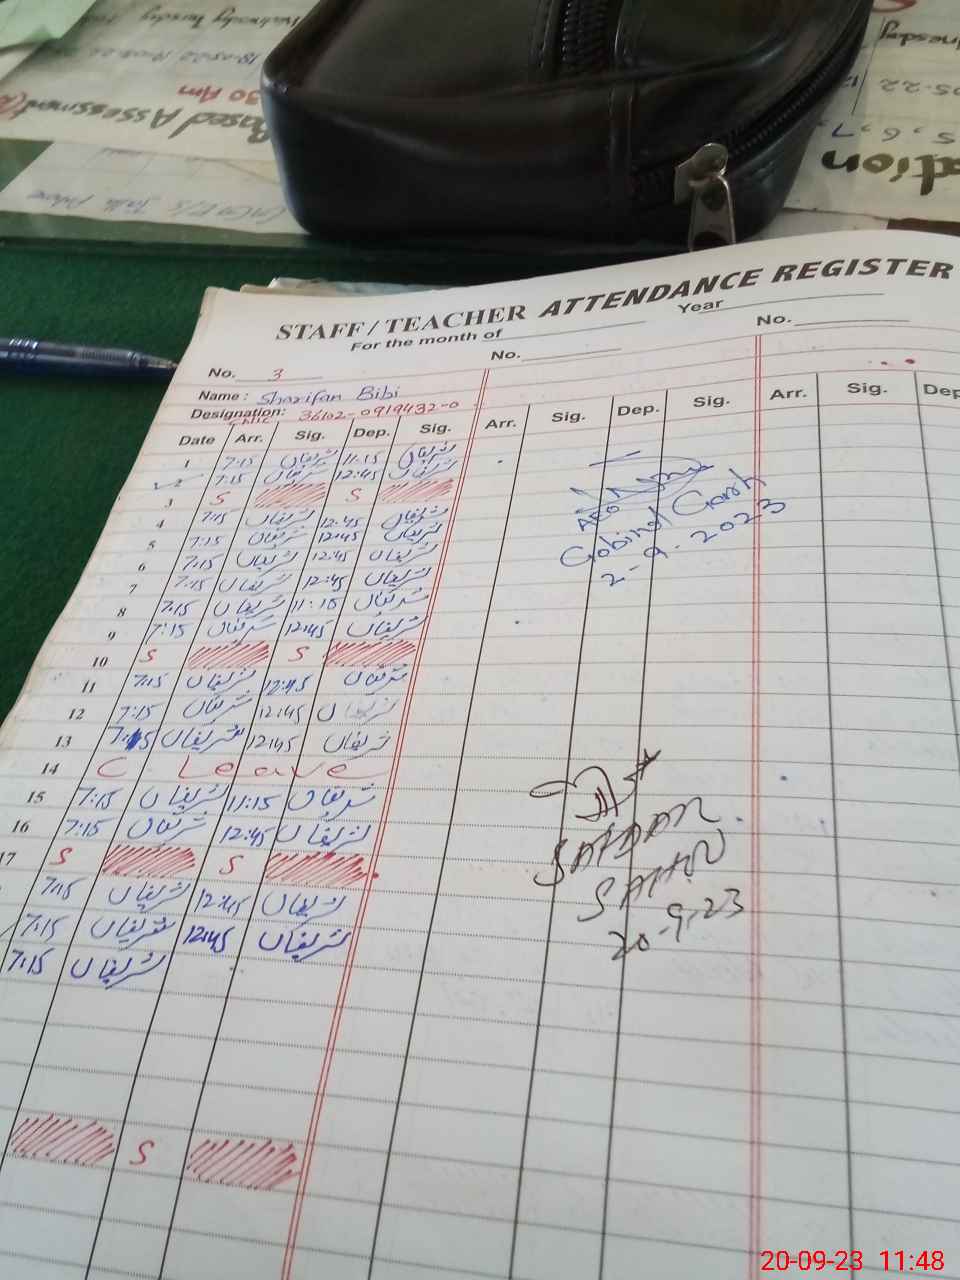 Wednesday Tuesday
18-05-22 19-05-22
:30 Am
Based Assessment
5, 6, 7,
STAFF / TEACHER ATTENDANCE REGISTER
For the month of Year
No. 3 No. No.
Name : Sharifan Bibi
Designation: 36102-0919432-0
Date Arr. Sig. Dep. Sig. Arr. Sig. Dep. Sig. Arr. Sig. Dep
1 7:15 شریفاں 11:15 شریفاں
2 7:15 شریفاں 12:45 شریفاں
3 S S
4 7:15 شریفاں 12:45 شریفاں
5 7:15 شریفاں 12:45 شریفاں
6 7:15 شریفاں 12:45 شریفاں
7 7:15 شریفاں 12:45 شریفاں
8 7:15 شریفاں 11:15 شریفاں
9 7:15 شریفاں 12:45 شریفاں
10 S S
11 7:15 شریفاں 12:45 شریفاں
12 7:15 شریفاں 12:45 شریفاں
13 7:15 شریفاں 12:45 شریفاں
14 C Leave
15 7:15 شریفاں 11:15 شریفاں
16 7:15 شریفاں 12:45 شریفاں
17 S S
7:15 شریفاں 12:45 شریفاں
7:15 شریفاں 12:45 شریفاں
7:15 شریفاں
S
AEO
Gobind Garh
2-9-2023
20-9-23
20-09-23 11:48